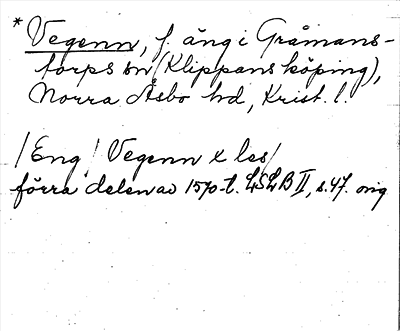 * Vegenn, f. äng i Gråmans-
torps sn (Klippans köping),
Norra Åsbo hd, Krist. l.
/Eng/ Vegenn x les/
förra delen av 1570-t. LSLB II, s. 47. orig